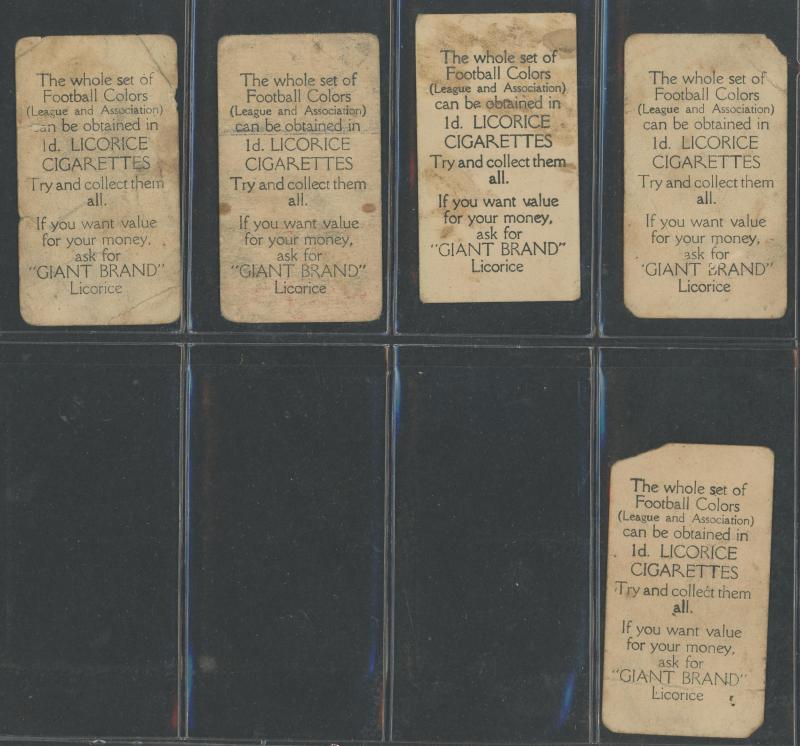 The whole set of
Football Colors
(League and Association)
can be obtained in
1d. LICORICE
CIGARETTES
Try and collect them
all.
If you want value
for your money,
ask for
"GIANT BRAND"
Licorice
The whole set of
Football Colors
(League and Association)
can be obtained in
1d. LICORICE
CIGARETTES
Try and collect them
all.
If you want value
for your money,
ask for
"GIANT BRAND"
Licorice
The whole set of
Football Colors
(League and Association)
can be obtained in
1d. LICORICE
CIGARETTES
Try and collect them
all.
If you want value
for your money,
ask for
"GIANT BRAND"
Licorice
The whole set of
Football Colors
(League and Association)
can be obtained in
1d. LICORICE
CIGARETTES
Try and collect them
all.
If you want value
for your money,
ask for
"GIANT BRAND"
Licorice
The whole set of
Football Colors
(League and Association)
can be obtained in
1d. LICORICE
CIGARETTES
Try and collect them
all.
If you want value
for your money,
ask for
"GIANT BRAND"
Licorice